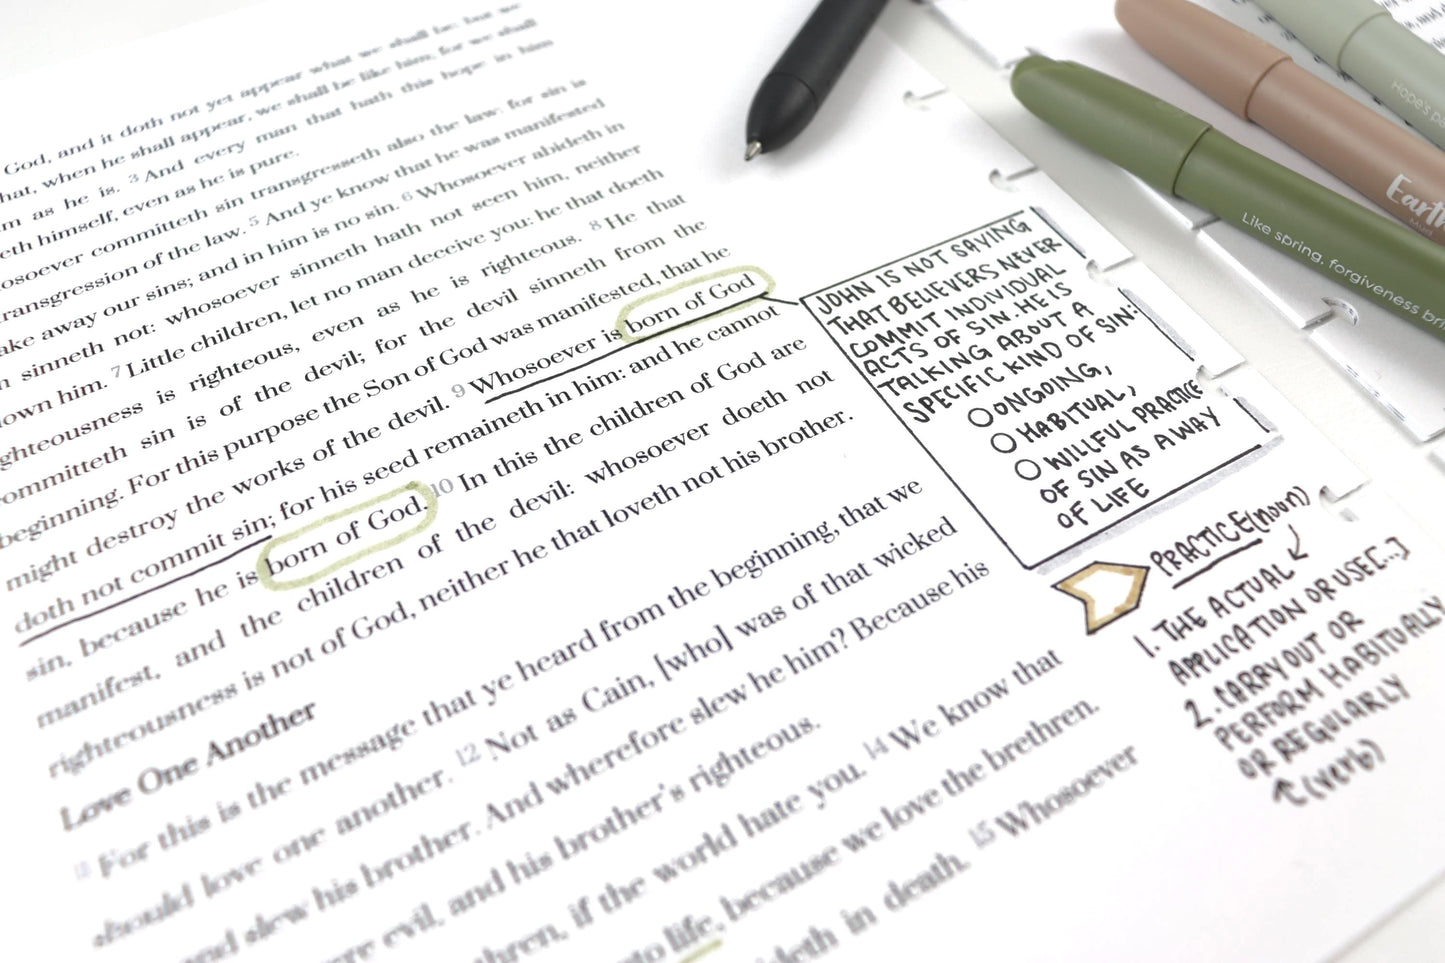 God, and it doth not yet appear what we shall be: but we
that, when he shall appear, we shall be like him; for we shall
him as he is. 3 And every man that hath this hope in him
eth himself, even as he is pure.
osoever committeth sin transgresseth also the law: for sin is
transgression of the law. 5 And ye know that he was manifested
ake away our sins; and in him is no sin. 6 Whosoever abideth in
n sinneth not: whosoever sinneth hath not seen him, neither
nown him. 7 Little children, let no man deceive you: he that doeth
ghteousness is righteous, even as he is righteous. 8 He that
committeth sin is of the devil; for the devil sinneth from the
beginning. For this purpose the Son of God was manifested, that he
might destroy the works of the devil. 9 Whosoever is born of God
doth not commit sin; for his seed remaineth in him: and he cannot
sin, because he is born of God. 10 In this the children of God are
manifest, and the children of the devil: whosoever doeth not
righteousness is not of God, neither he that loveth not his brother.
Love One Another
11 For this is the message that ye heard from the beginning, that we
should love one another. 12 Not as Cain, [who] was of that wicked
and slew his brother. And wherefore slew he him? Because his
ere evil, and his brother's righteous.
thren, if the world hate you. 14 We know that
to life, because we love the brethren.
ideth in death. 15 Whosoever
JOHN IS NOT SAYING
THAT BELIEVERS NEVER
COMMIT INDIVIDUAL
ACTS OF SIN. HE IS
TALKING ABOUT A
SPECIFIC KIND OF SIN:
ONGOING,
HABITUAL,
WILLFUL PRACTICE
OF SIN AS A WAY
OF LIFE
PRACTICE (noun)
1. THE ACTUAL
APPLICATION OR USE [...]
2. CARRY OUT OR
PERFORM HABITUALLY
OR REGULARLY
(verb)
Like spring, forgiveness bri
Earth
Hope's p